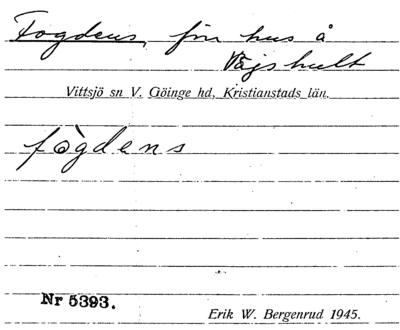 Fogdens, förr hus å
Vejshult
Vittsjö sn V. Göinge hd, Kristianstads län.
fògdens
Nr 5393.
Erik W. Bergenrud 1945.